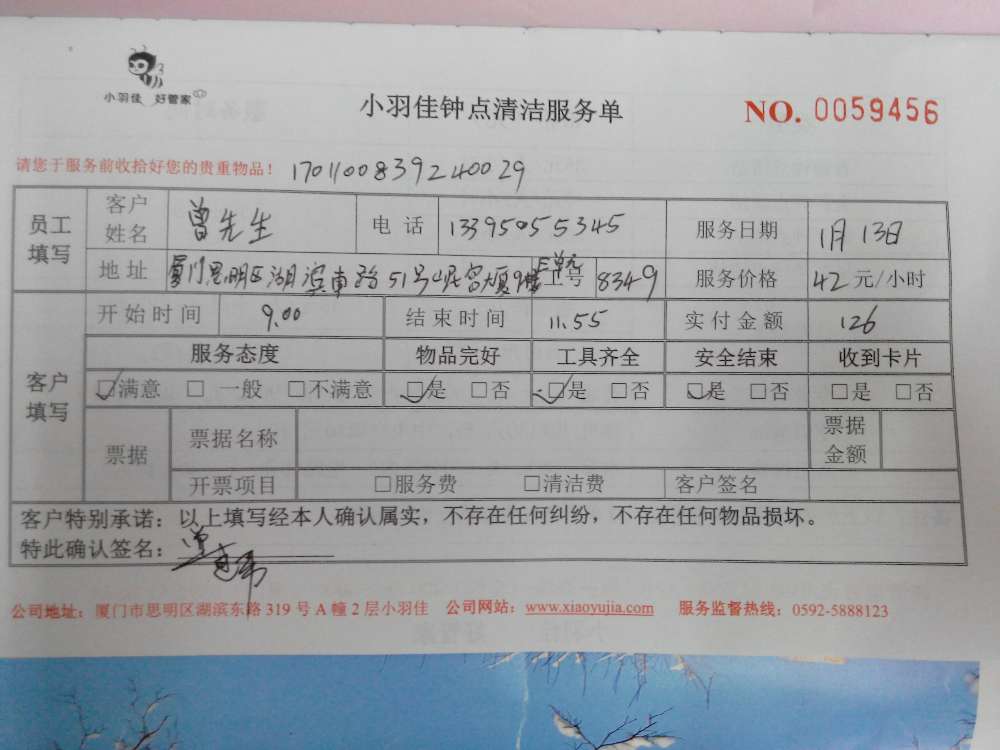 小羽佳 好管家
小羽佳钟点清洁服务单
NO. 0059456
请您于服务前收拾好您的贵重物品！ 1701100839240029
员工填写 客户姓名 曾先生 电话 13395055345 服务日期 1月13日
地址 厦门思明区湖滨南路51号 工号 8349 服务价格 42 元/小时
客户填写 开始时间 9.00 结束时间 11.55 实付金额 126
服务态度 物品完好 工具齐全 安全结束 收到卡片
☑满意 □一般 □不满意 ☑是 □否 ☑是 □否 ☑是 □否 □是 □否
票据 票据名称 票据金额
开票项目 □服务费 □清洁费 客户签名
客户特别承诺：以上填写经本人确认属实，不存在任何纠纷，不存在任何物品损坏。
特此确认签名：
公司地址：厦门市思明区湖滨东路 319 号 A 幢 2 层小羽佳 公司网站：www.xiaoyujia.com 服务监督热线：0592-5888123